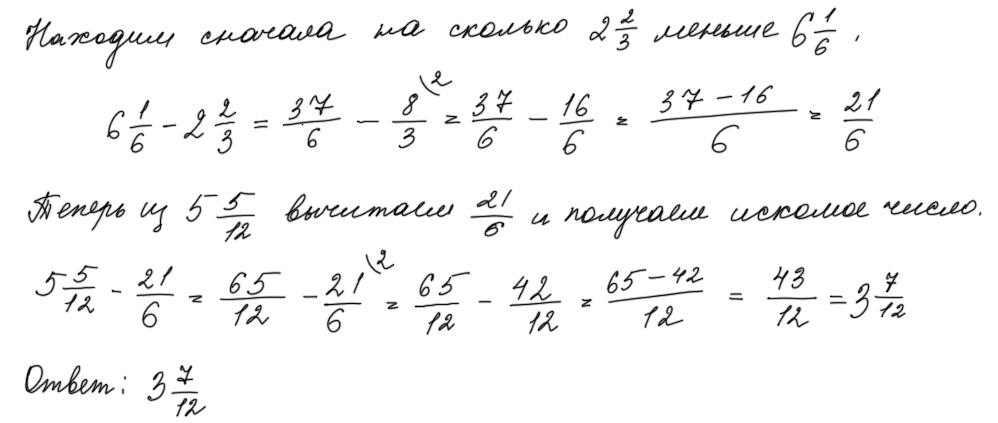 Находим сначала на сколько 2 2/3 меньше 6 1/6.
6 1/6 - 2 2/3 = 37/6 - 8/3 \2 = 37/6 - 16/6 = (37-16)/6 = 21/6
Теперь из 5 5/12 вычитаем 21/6 и получаем искомое число.
5 5/12 - 21/6 = 65/12 - 21/6 \2 = 65/12 - 42/12 = (65-42)/12 = 43/12 = 3 7/12
Ответ: 3 7/12